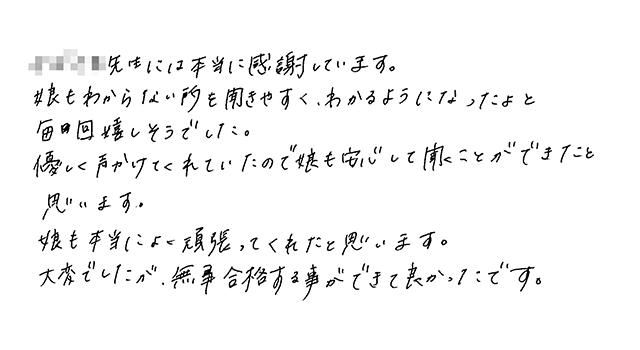 先生には本当に感謝しています。
娘もわからない所を聞きやすく、わかるようになったよと
毎日回嬉しそうでした。
優しく声かけてくれていたので娘も安心して聞くことができたと
思います。
娘も本当によく頑張ってくれたと思います。
大変でしたが、無事合格する事ができて良かったです。